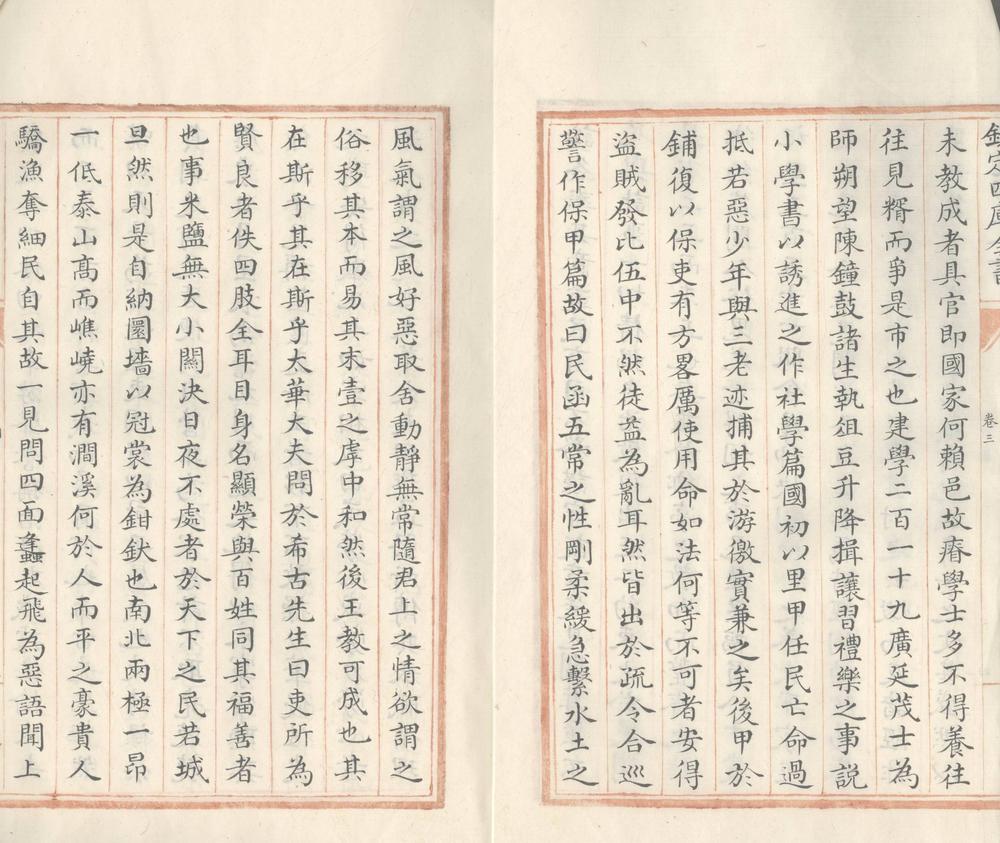 欽定四庫全書
卷三
未教成者具官即國家何賴邑故瘠學士多不得養往
往見糈而爭是市之也建學二百一十九廣延茂士為
師朔望陳鐘鼓諸生執俎豆升降揖讓習禮樂之事説
小學書以誘進之作社學篇國初以里甲任民亡命過
抵若惡少年與三老迹捕其於游徼實兼之矣後甲於
鋪復以保吏有方畧厲使用命如法何等不可者安得
盜賊發比伍中不然徒益為亂耳然皆出於疏令合巡
警作保甲篇故曰民函五常之性剛柔緩急繫水土之
風氣謂之風好惡取舍動靜無常隨君上之情欲謂之
俗移其本而易其末壹之虖中和然後王教可成也其
在斯乎其在斯乎太華大夫問於希古先生曰吏所為
賢良者佚四肢全耳目身名顯榮與百姓同其福善者
也事米鹽無大小關決日夜不處者於天下之民若城
旦然則是自納圜墻以冠裳為鉗釱也南北兩極一昂
一低泰山高而嶕嶢亦有澗溪何於人而平之豪貴人
驕漁奪細民自其故一見問四面蠭起飛為惡語聞上